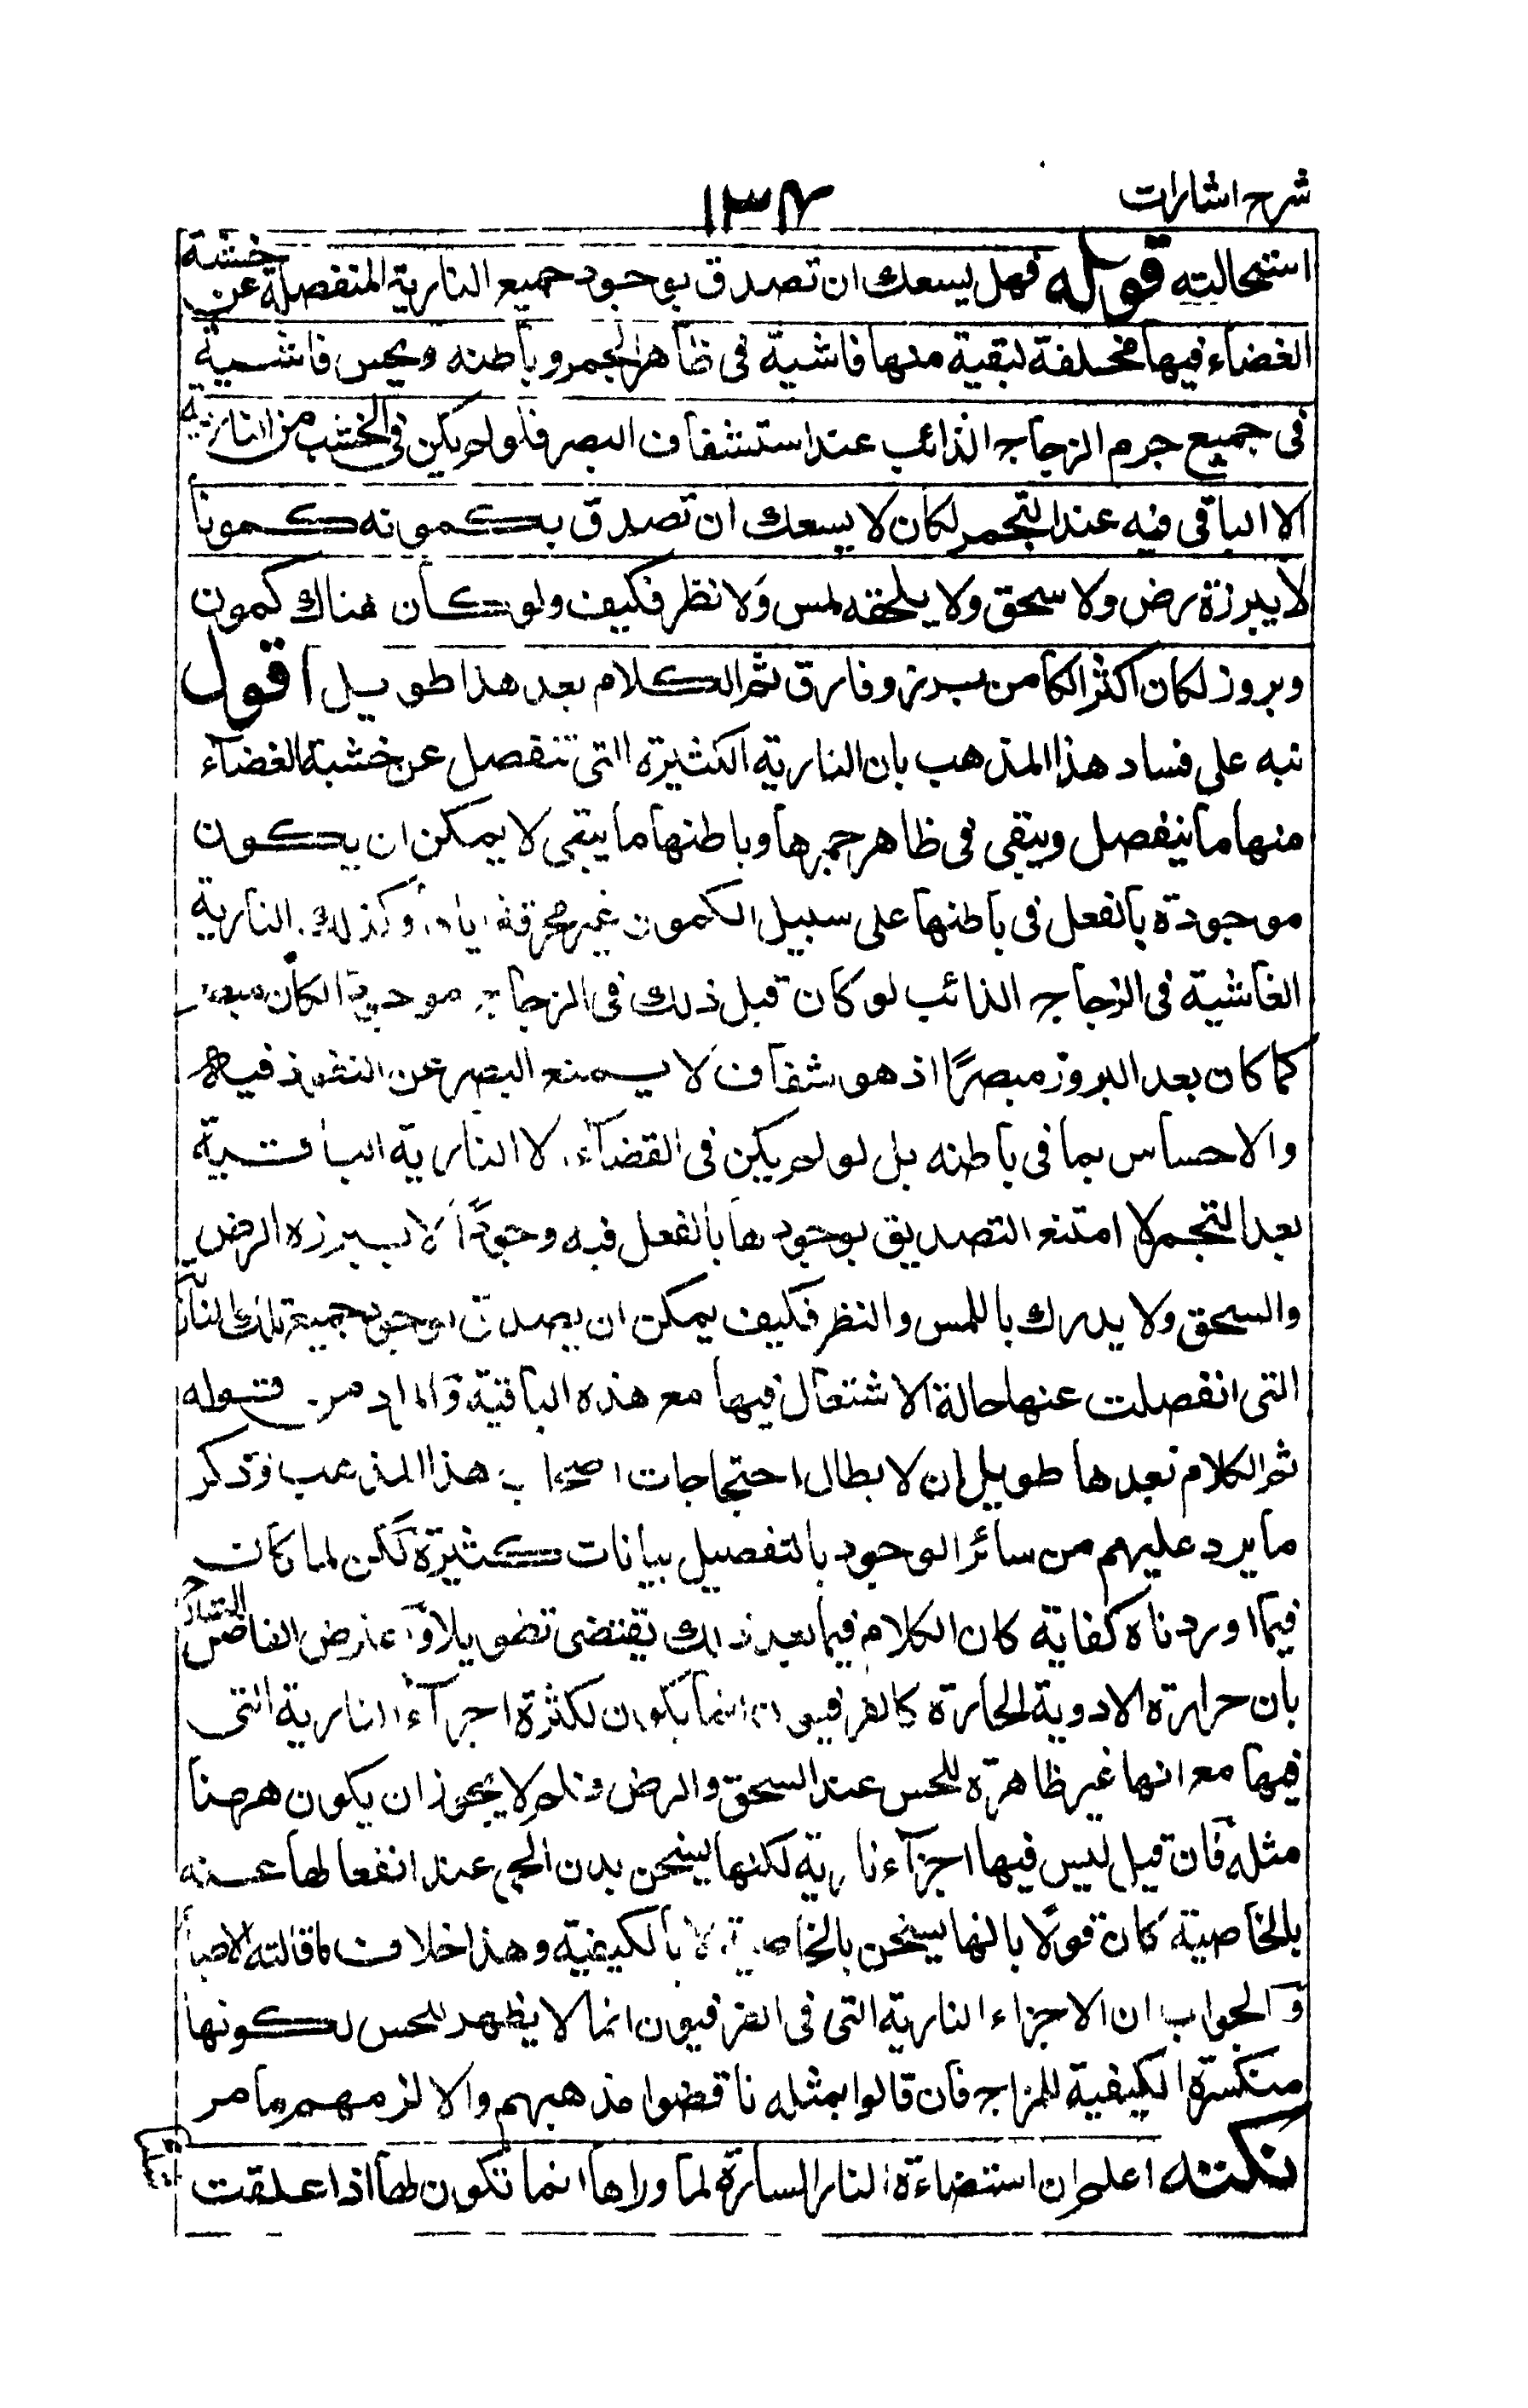 شرح اشارات
١٣٤
استحالته قوله فهل يسعك ان تصدق بوجود جميع النارية المنفصلة عن خشبة
الغضاء فيها مخلفة لبقية منها فاشية فى ظاهر الجمر وباطنه ويحس فاشية
فى جميع جرم الزجاج الذائب عند استشفاف البصر فلو لم يكن فى الخشب من النارية
الا الباقى فيه عند التجمر لكان لا يسعك ان تصدق بكمونه كمونا
لا يبرزة رض ولا سحق ولا يلحقه لمس ولا نظر فكيف ولو كان هناك كمون
وبروز لكان اكثر الكامن يبرز وفارق ثم الكلام بعد هذا طويل اقول
نبه على فساد هذا المذهب بان النارية الكثيرة التى تنفصل عن خشبة الغضآء
منها ما ينفصل ويبقى فى ظاهر جمرها وباطنها ما يبقى لا يمكن ان يكون
موجودة بالفعل فى باطنها على سبيل الكمون غير محرقة اياه وكذلك النارية
الفاشية فى الزجاج الذائب لو كان قبل ذلك فى الزجاج موجودة لكان مبصرا
كما كان بعد البروز مبصرًا اذ هو شفاف لا يمنع البصر عن النفوذ فيه
والاحساس بما فى باطنه بل لو لم يكن فى القضآء الا النارية الباقية
بعد التجمر لا امتنع التصديق بوجودها بالفعل فيه وجودًا لا يبرزه الرض
والسحق ولا يدرك باللمس والنظر فكيف يمكن ان يصدق بوجود جميع تلك النارية
التى انفصلت عنها حالة الاشتعال فيها مع هذه الباقية والمراد من قوله
ثم الكلام بعدها طويل ان لابطال احتجاجات اصحاب هذا المذهب وذكر
ما يرد عليهم من سائر الوجود بالتفصيل بيانات كثيرة لكن لما كان
فيما اوردناه كفاية كان الكلام فيما بعد ذلك يقتضى تطويلا وآعارض الفاضل الشارح
بان حرارة الادوية الحارة كالفرفيون انما يكون لكثرة اجزآء النارية التى
فيها مع انها غير ظاهرة للحس عند السحق والرض فلم لا يجوز ان يكون ههنا
مثله فان قيل ليس فيها اجزآء نارية لكنها يسخن بدن الحى عند انفعالها عنه
بالخاصية كان قولًا بانها يسخن بالخاصية لا بالكيفية وهذا خلاف لما قالته الاطبا
وآلجواب ان الاجزاء النارية التى فى الفرفيون انما لا يظهر للحس لكونها
منكسرة الكيفية للمزاج فان قالوا بمثله ناقضوا مذهبهم والا لزمهم ما مر
نكتة اعلم ان استضاءة النار السارة لما وراها انما تكون لها اذا علقت